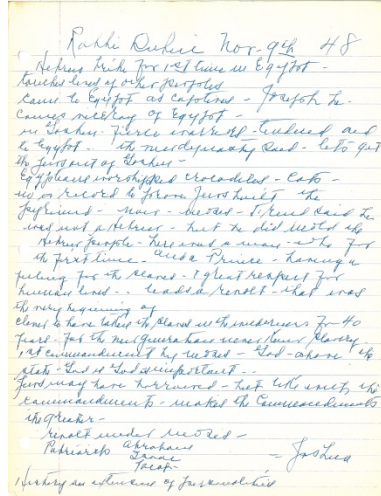 Rabbi Nov. 9th 48
Hebrew tribe for 1st time in Egypt -
touches lives of other peoples
came to Egypt as captives - Joseph be
comes viceroy of Egypt -
in Goshen - fierce and
to Egypt - the new dynasty said - let's get
the Jews out of Goshen -
Egyptians worshipped crocodiles - cats -
no record to prove Jews built the
Pyramids - now - Moses - Freud said he
was not a Hebrew - but he did mold the
Hebrew people - here was a man - who for
the first time - and a Prince - having a
feeling for the slaves - & great respect for
human lives - leads a revolt - that was
the very beginning of
to have taken the slaves in the wilderness for 40
years. For the new generation never knew slavery
1st commandment by Moses - God - above the
state - God is God important -
Jews may have borrowed - but the
commandments - makes the Commandments
the greater -
revolt Moses -
Patriarchs Abraham
Isaac
Jacob - = Joshua
History an extension of personalities